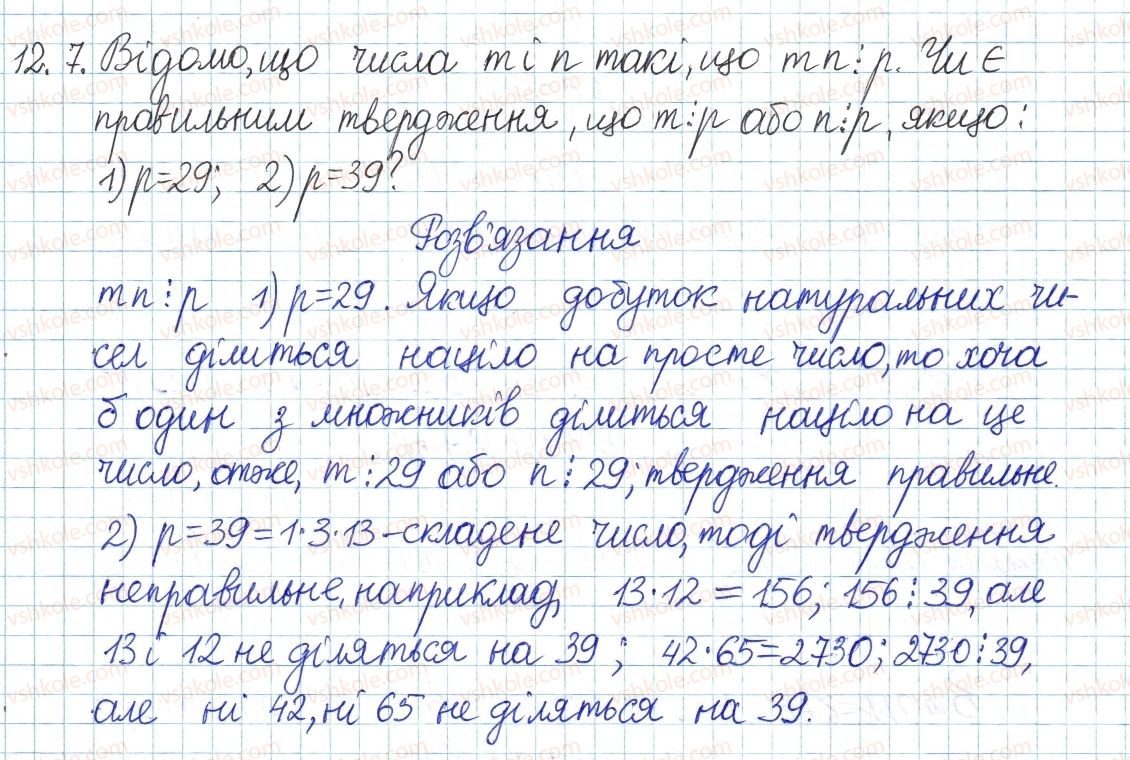 12.7. Відомо, що числа m і n такі, що mn⋮p. Чи є
правильним твердження, що m⋮p або n⋮p, якщо:
1) p=29; 2) p=39?
Розв'язання
mn⋮p 1) p=29. Якщо добуток натуральних чи-
сел ділиться націло на просте число, то хоча
б один з множників ділиться націло на це
число, отже, m⋮29 або n⋮29; твердження правильне.
2) p=39=1·3·13-складене число, тоді твердження
неправильне, наприклад, 13·12=156; 156⋮39, але
13 і 12 не діляться на 39; 42·65=2730; 2730⋮39,
але ні 42, ні 65 не діляться на 39.